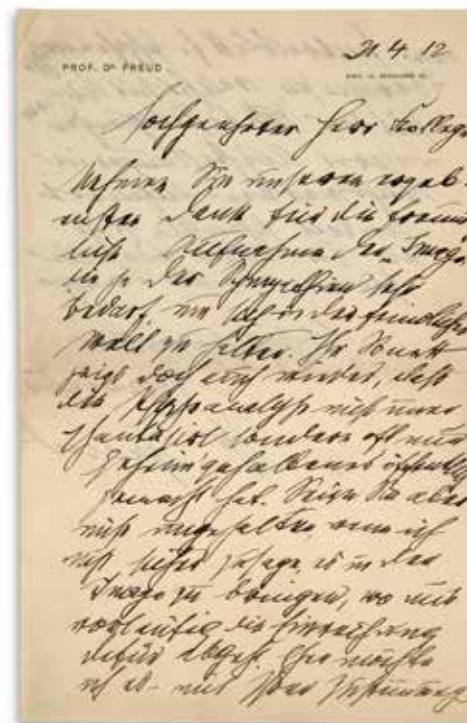 PROF. Dr. FREUD
21. 4. 12
WIEN, IX. BERGGASSE 19.
Hochgeehrter Herr Kollege
Nehmen Sie unseren ergeb-
ensten Dank für die freund-
liche Aufnahme der „Imago,
die ja der Sympathien sehr
bedarf, um sich in der feindlichen
Welt zu halten. Ihr Sonett
zeigt doch auch wieder, daß
die Psychoanalyse nicht immer
phantasirt sondern oft nur
Geheimgehaltenes öffentlich
gemacht hat. Seien Sie aber
nicht ungehalten wenn ich
nicht sicher zusage, es in der
Imago zu bringen, wo uns
vorläufig die Einreihung
dafür abgeht. Hier möchte
ich es mit Ihrer Zustimmung